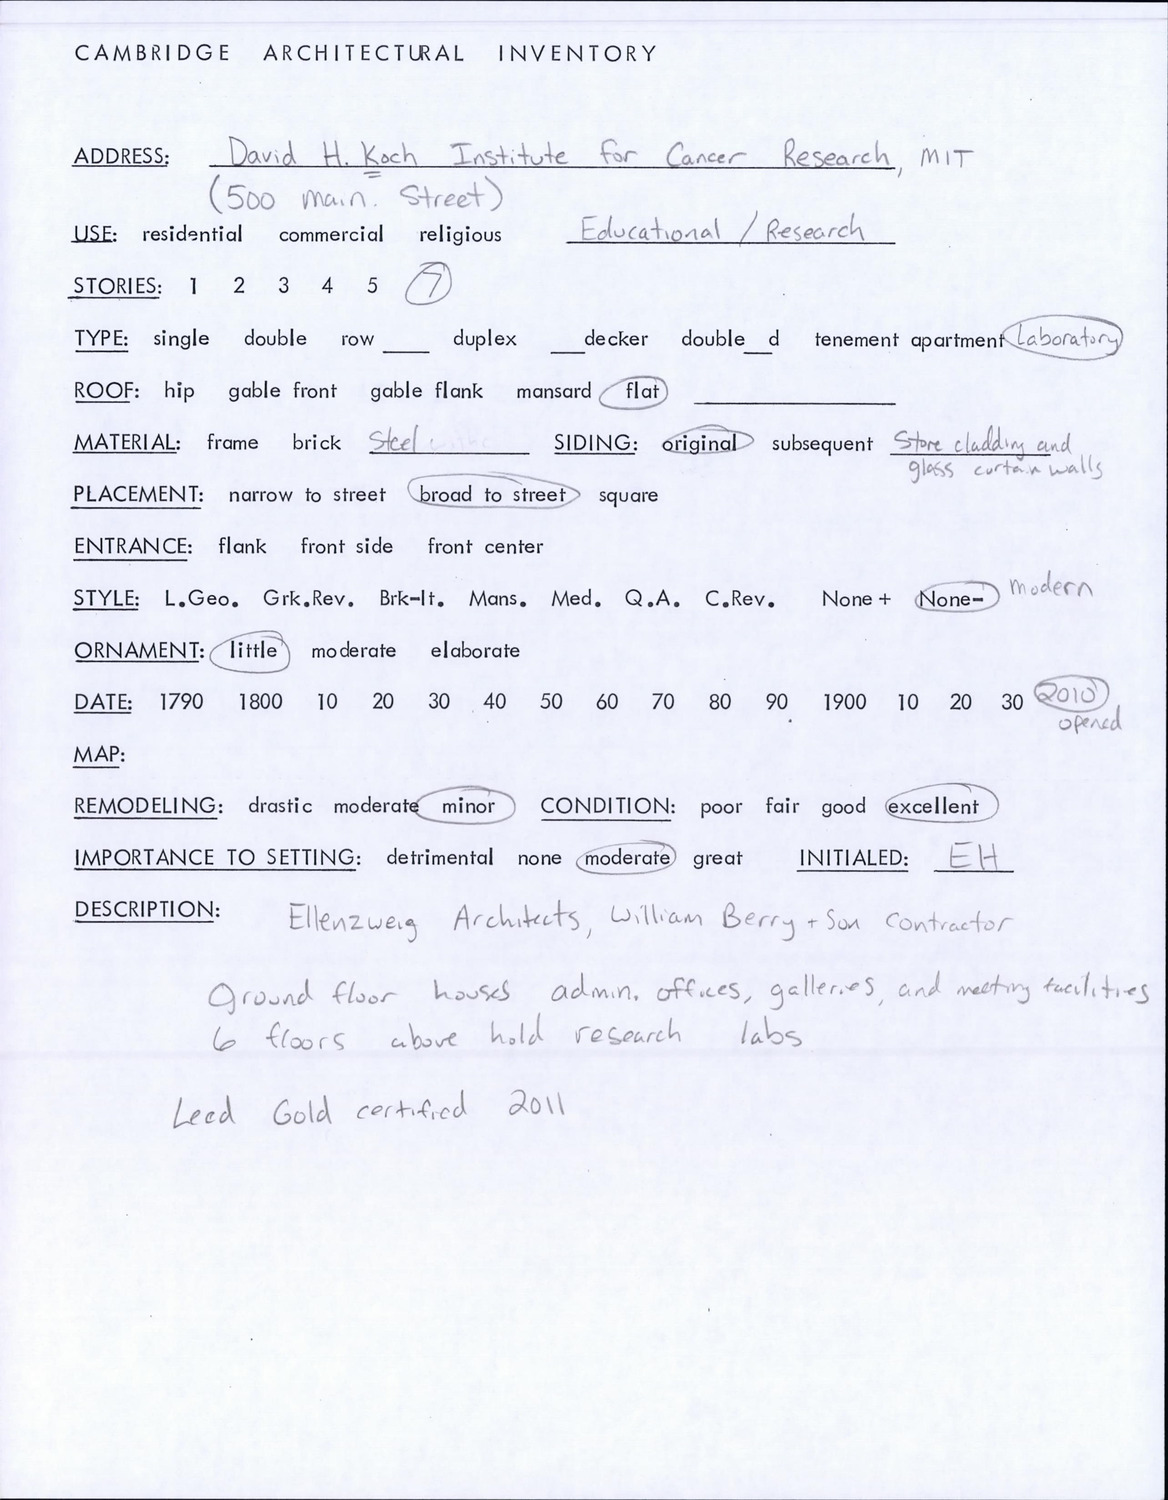 CAMBRIDGE ARCHITECTURAL INVENTORY
ADDRESS: David H. Koch Institute for Cancer Research, MIT
(500 Main. Street)
USE: residential commercial religious Educational / Research
STORIES: 1 2 3 4 5 7
TYPE: single double row ___ duplex ___decker double__d tenement apartment Laboratory
ROOF: hip gable front gable flank mansard flat ___
MATERIAL: frame brick Steel SIDING: original subsequent Stone cladding and
glass curtain walls
PLACEMENT: narrow to street broad to street square
ENTRANCE: flank front side front center
STYLE: L.Geo. Grk.Rev. Brk-It. Mans. Med. Q.A. C.Rev. None+ None- modern
ORNAMENT: little moderate elaborate
DATE: 1790 1800 10 20 30 40 50 60 70 80 90 1900 10 20 30 2010
opened
MAP:
REMODELING: drastic moderate minor CONDITION: poor fair good excellent
IMPORTANCE TO SETTING: detrimental none moderate great INITIALED: EH
DESCRIPTION: Ellenzweig Architects, William Berry + Son contractor
Ground floor houses admin. offices, galleries, and meeting facilities
6 floors above hold research labs
Leed Gold certified 2011